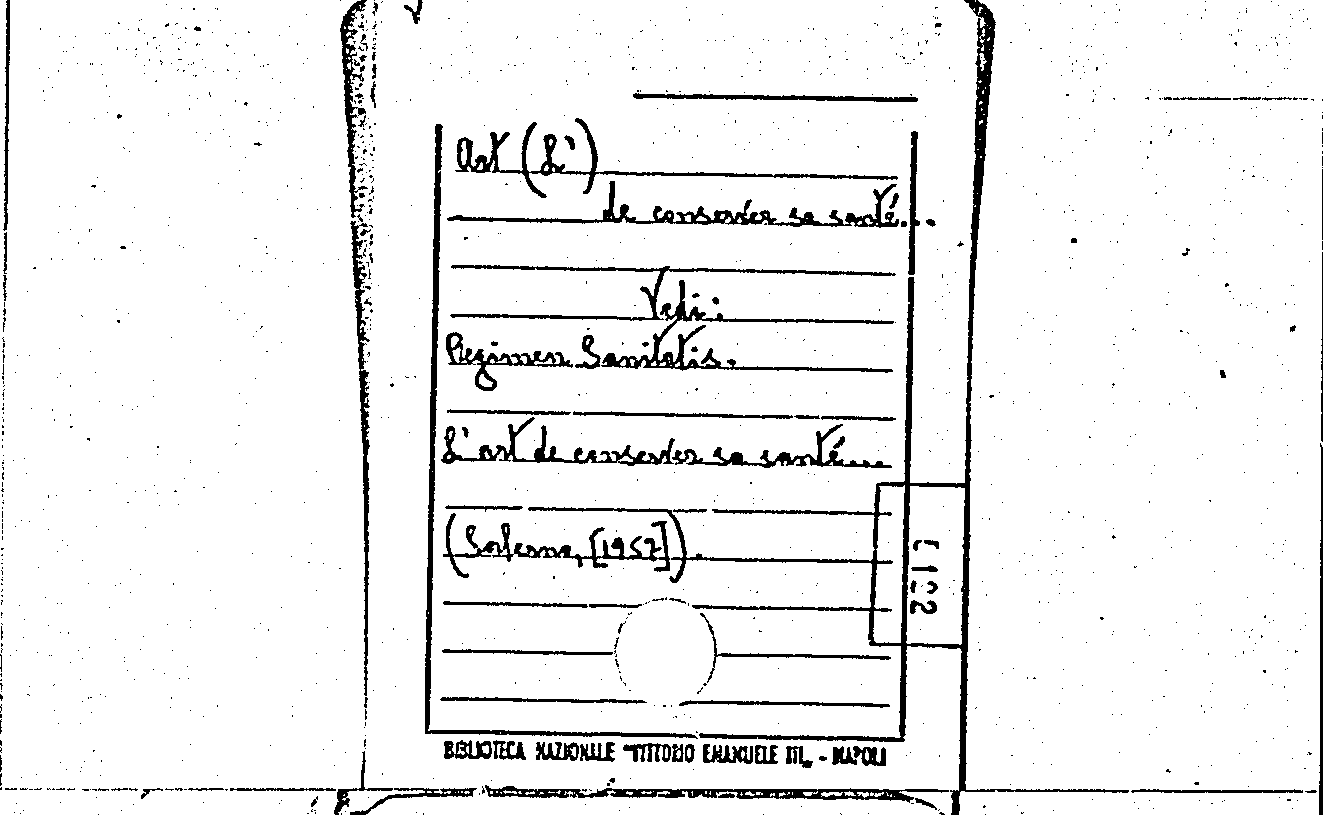 Art (L')
de conserver sa santé...
Vedi:
Regimen Sanitatis.
L'art de conserver sa santé...
(Salerno, [1957]).
BIBLIOTECA NAZIONALE "VITTORIO EMANUELE III„ - NAPOLI